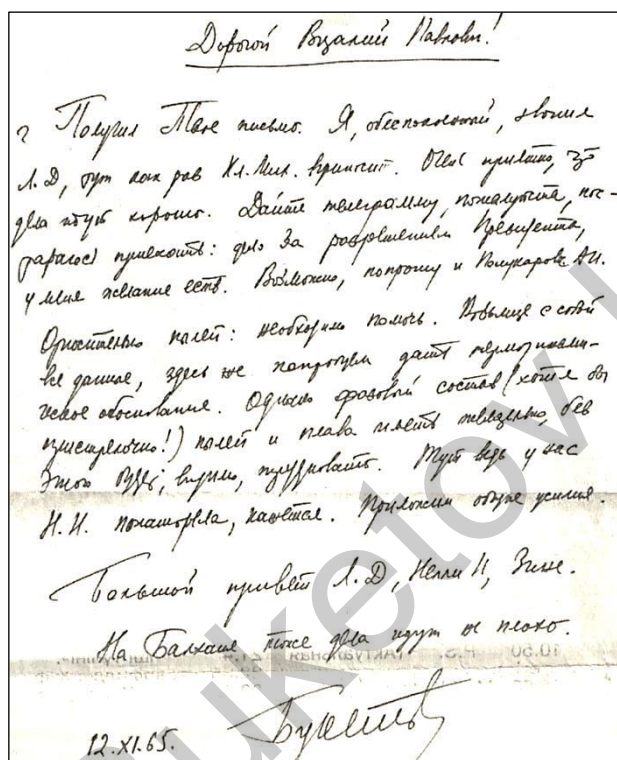 Дорогой Виталий Павлович!
Получил Твое письмо. Я, обеспокоенный, звонил
Л.Д, тут как раз Хл. Мих. Очень приятно, что
дела идут хорошо. Дайте телеграмму, пожалуйста, пос-
тараюсь приехать: дело за разрешением Президента,
у меня желание есть. Возможно, попрошу и А.И.
Относительно пылей: необходимо помочь. с собой
все данные, здесь же попробуем дать термодинами-
ческое обоснование. Однако фазовый состав (хотя бы
!) пылей и плава иметь, без
этого будет, видимо, трудновато. Тут ведь у нас
Н.И. кажется. Приложим общие усилия.
Большой привет Л.Д, Нелли И, Зине.
На Балхаше тоже дела идут не плохо.
12.XI.65.
Букетов